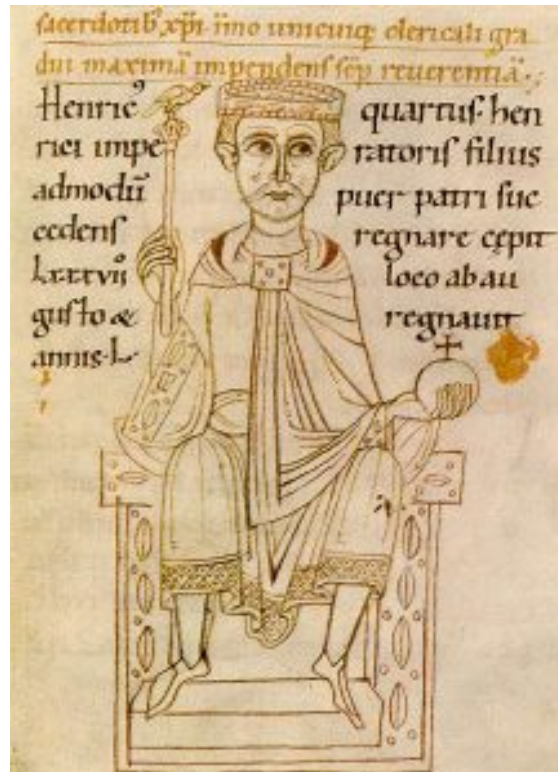 sacerdotib᾽ xp̄i im̄o unicuiq; clericali gra
dui maximā impendens sēp reuerentiā.
Henric᾽ quartus. hen
rici impe ratoris filius
admodū puer patri suc
cedens regnare cępit
loco ab au
gusto & regnauit
annis. L